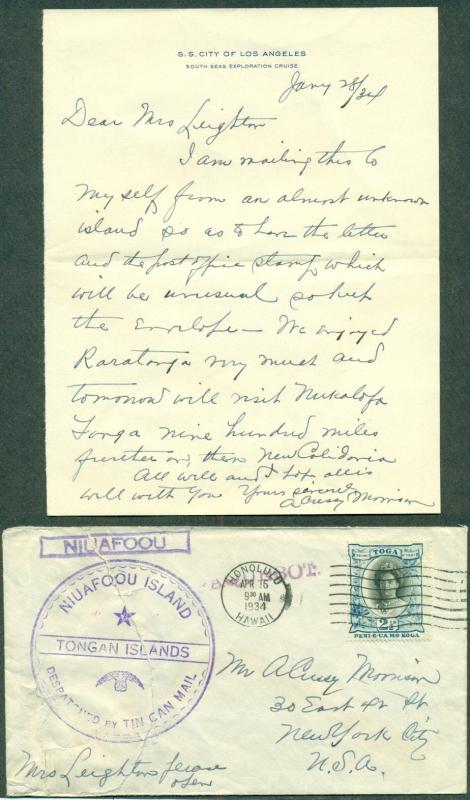 S.S. CITY OF LOS ANGELES
SOUTH SEAS EXPLORATION CRUISE
Jany 28/34
Dear Mrs Leighton
I am mailing this to
my self from an almost unknown
island so as to have the letter
and the post office stamp which
will be unusual so keep
the Envelope – We enjoyed
Raratonga very much and
tomorrow will visit Nukalofa
Tonga nine hundred miles
further on, then New Calidonia
All well and I hope all is
well with you Yours sincerely
A Cressy Morrison
NIUAFOOU
NIUAFOOU ISLAND
TONGAN ISLANDS
DESPATCHED BY TIN CAN MAIL
HONOLULU
APR 16
9 30 AM
1934
HAWAII
BOT.
TOGA
2½
PENI·E·UA MO KOGA
Mr A Cressy Morrison
30 East 42 St
New York City
U.S.A.
Mrs Leighton please
open